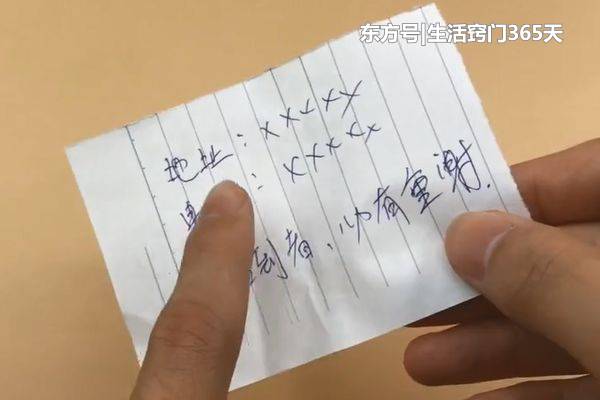 东方号|生活窍门365天
地址:xxxxx
:xxxxx
到者、必有重谢.